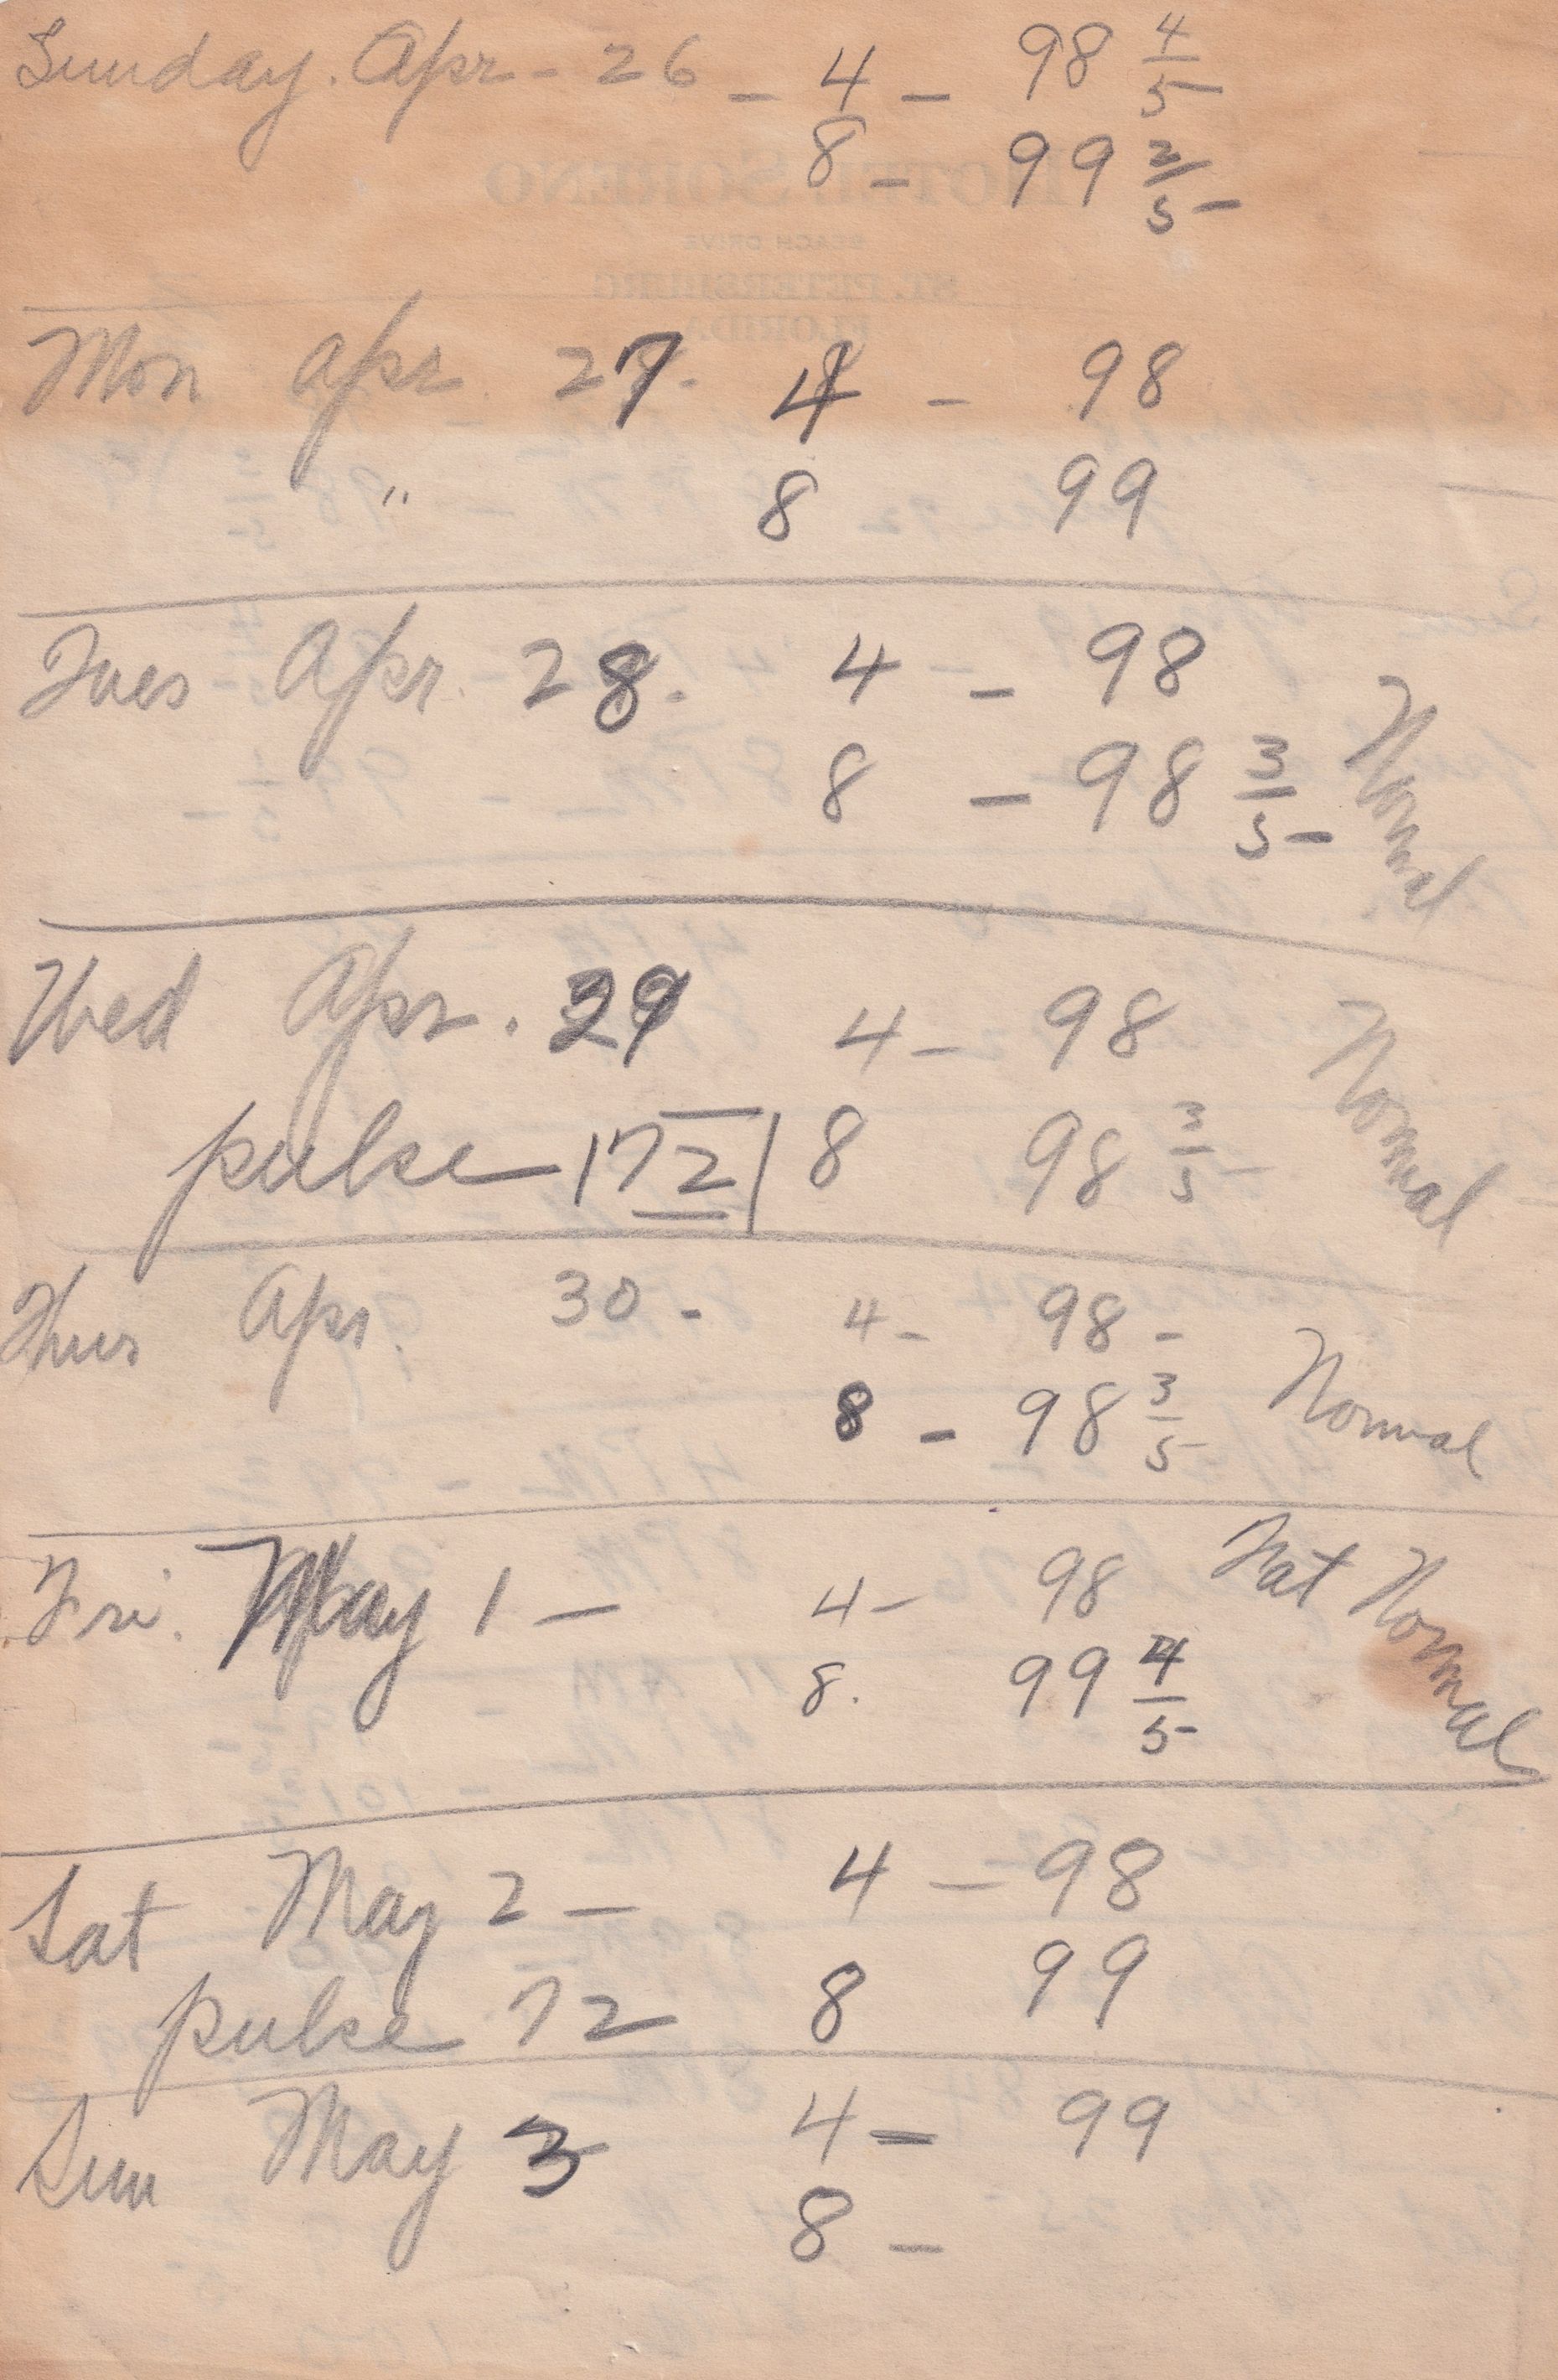 Sunday. Apr - 26 - 4 - 98 4/5
8 - 99 2/5
HOTEL SORENO
BEACH DRIVE
ST. PETERSBURG
FLORIDA
Mon Apr 27. 4 - 98
" 8 99
Tues Apr. 28. 4 - 98
8 - 98 3/5 Normal
Wed Apr. 29 4 - 98
pulse 72 8 98 3/5 Normal
Thur Apr. 30 - 4 - 98 -
8 - 98 3/5 Normal
Fri. May 1 - 4 - 98 Normal
8. 99 4/5
Sat May 2 - 4 - 98
pulse 72 8 99
Sun May 3 4 - 99
8 -